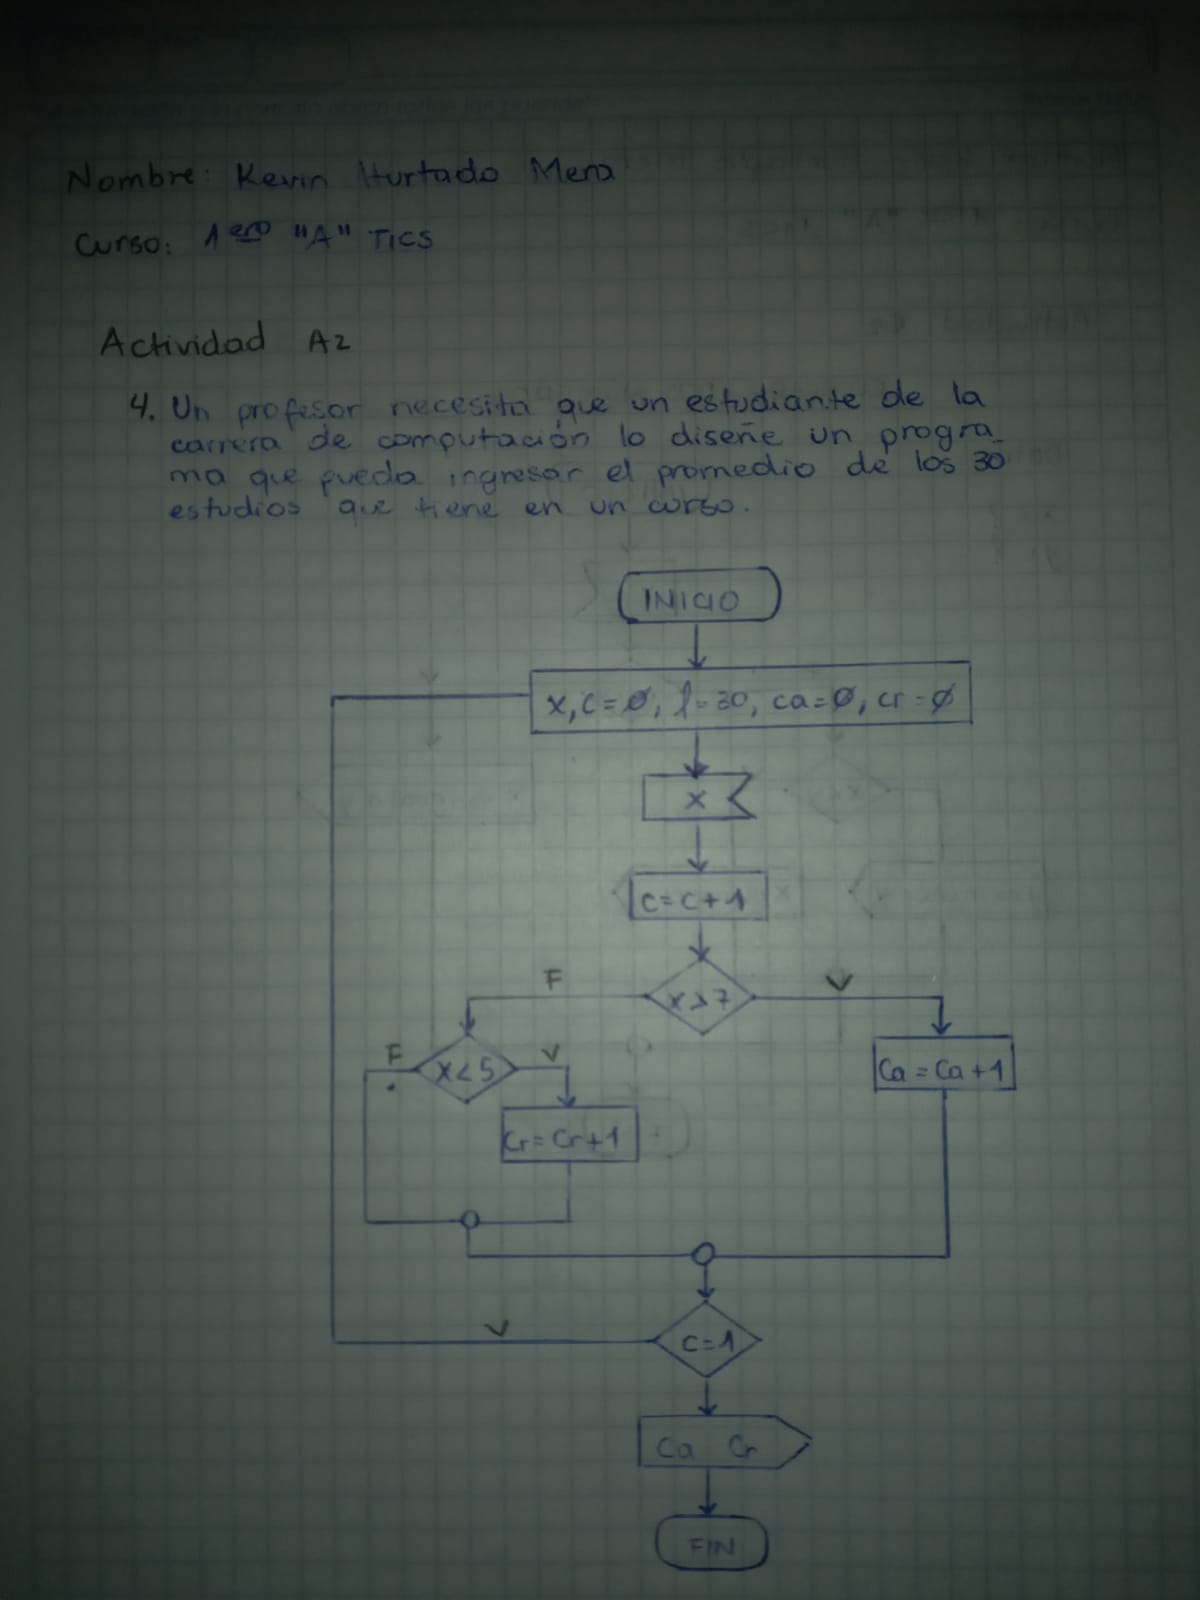 Nombre: Kevin Hurtado Mera
Curso: 1ero "A" TICS
Actividad A2
4. Un profesor necesita que un estudiante de la
carrera de computación lo diseñe un progra_
ma que pueda ingresar el promedio de los 30
estudios que tiene en un curso.
INICIO
x, c=Ø, l=30, ca=Ø, cr=Ø
x
c=c+1
F
x>7
V
F
x<5
V
Ca=Ca+1
Cr=Cr+1
V
c=1
Ca Cr
FIN